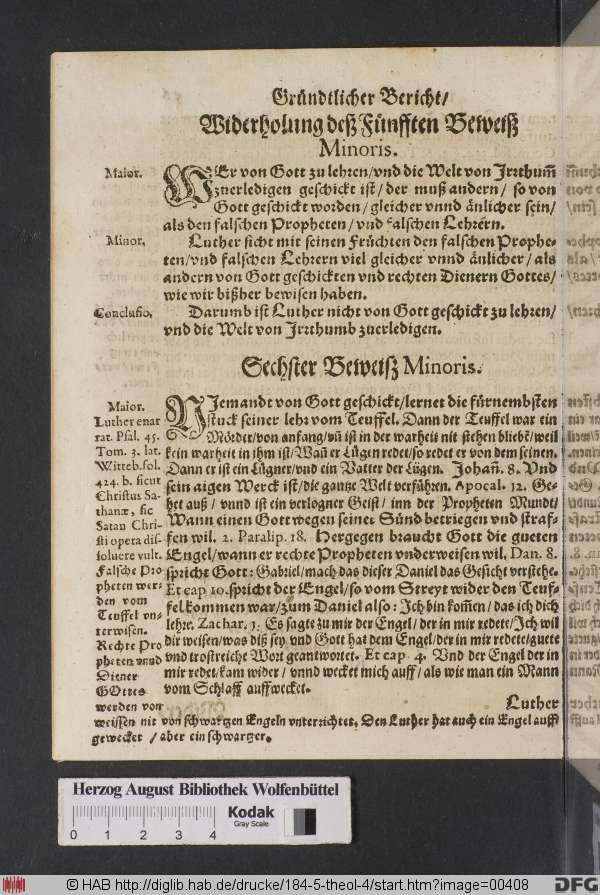 Gründtlicher Bericht/
Widerholung deß Fünfften Beweiß
Minoris.
Maior.
WEr von Gott zu lehren/vnd die Welt von Irrthum̃
zuerledigen geschickt ist/der muß andern/so von
Gott geschickt worden/gleicher vnnd änlicher sein/
als den falschen Propheten/vnd falschen Lehrern.
Minor.
Luther sicht mit seinen Früchten den falschen Prophe-
ten/vnd falschen Lehrern viel gleicher vnnd änlicher/als
andern von Gott geschickten vnd rechten Dienern Gottes/
wie wir bißher bewisen haben.
Conclusio.
Darumb ist Luther nicht von Gott geschickt zu lehren/
vnd die Welt von Irrthumb zuerledigen.
Sechster Beweiß Minoris.
Maior.
Luther enar
rat. Psal. 45.
Tom. 3. lat.
Witteb. fol.
424. b. sicut
Christus Sa-
thanæ, sic
Satan Chri-
sti opera dis-
soluere vult.
Falsche Pro
pheten wer-
den vom
Teuffel vn-
terwisen.
Rechte Pro
pheten vnnd
Diener
GOttes
werden von
weissen nit von schwartzen Engeln vnterrichtet. Den Luther hat auch ein Engel auff
gewecket/aber ein schwartzer.
NIemandt von Gott geschickt/lernet die fürnembsten
stuck seiner lehr vom Teuffel. Dann der Teuffel war ein
Mörder/von anfang/vn̄ ist in der warheit nit stehen bliebē/weil
kein warheit in ihm ist/Wan̄ er Lügen redet/so redet er von dem seinen.
Dann er ist ein Lügner/vnd ein Vatter der Lügen. Johan̄. 8. Vnd
sein aigen Werck ist/die gantze Welt verführen. Apocal. 12. Ge-
het auß/vnnd ist ein verlogner Geist/inn der Propheten Mundt/
Wann einen Gott wegen seiner Sünd betriegen vnd straf-
fen wil. 2. Paralip. 18. Hergegen braucht Gott die gueten
Engel/wann er rechte Propheten vnderweisen wil. Dan. 8.
spricht Gott: Gabriel/mach das dieser Daniel das Gesicht verstehe.
Et cap 10. spricht der Engel/so vom Streyt wider den Teuf-
fel kommen war/zum Daniel also: Ich bin kom̄en/das ich dich
lehre. Zachar. 1. Es sagte zu mir der Engel/der in mir redete/Ich wil
dir weisen/was diß sey vnd Gott hat dem Engel/der in mir redete/guete
vnd trostreiche Wort geantwortet. Et cap. 4. Vnd der Engel der in
mir redet/kam wider/vnnd wecket mich auff/als wie man ein Mann
vom Schlaff auffwecket.
Luther
Herzog August Bibliothek Wolfenbüttel
Kodak
Gray Scale
0 1 2 3 4
© HAB http://diglib.hab.de/drucke/184-5-theol-4/start.htm?image=00408
DFG